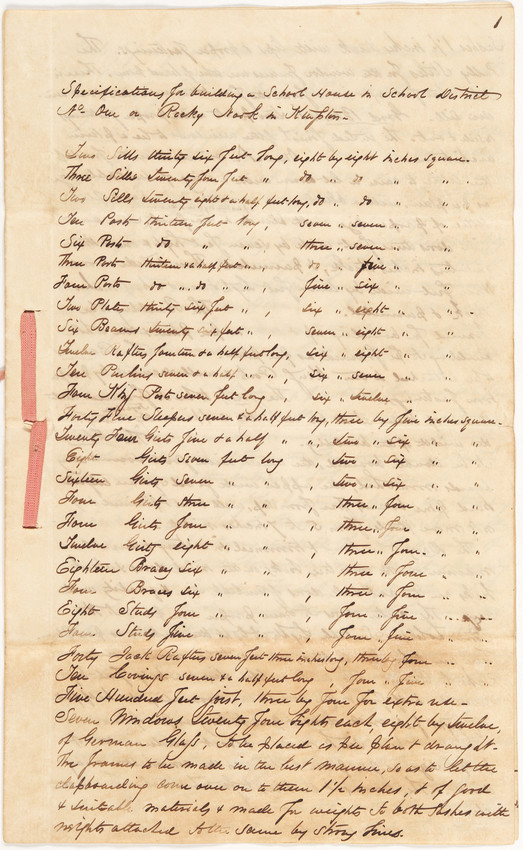 1
Specifications for building a School House in School District
No. One or Rocky Nook in Kingston-
Two Sills thirty six feet long, eight by eight inches square.
Three Sills twenty four feet " do " do " "
Two Sills twenty eight & a half feet long, do " do " "
Ten Posts thirteen feet long, seven " seven " "
Six Posts do " " , three " seven " "
Three Posts thirteen & a half feet do, five " "
Four Posts do " do " " , five " six " "
Two Plates thirty six feet " , six " eight " "
Six Beams twenty six feet " , seven " eight " "
Twelve Rafters fourteen & a half feet long, six " eight " "
Ten Purlins seven & a half " " , six " seven " "
Four King Posts seven feet long , six " twelve " "
Forty Five Sleepers seven & a half feet long, three by five inches square-
Twenty Four Girts five & a half " " , two " six " "
Eight Girts seven feet long , two " six " "
Sixteen Girts seven " " , two " six " "
Four Girts three " " , three " four " "
Four Girts four " " , three " four " "
Twelve Girts eight " " , three " four " "
Eighteen Braces six " " , three " four " "
Four Braces six " " , three " four " "
Eight Studs four " " , four " five " "
Four Studs five " " , four " five " "
Forty Jack Rafters seven feet three inches long, three by four " "
Ten seven & a half feet long , four " five " "
Five Hundred feet joist, three by four for extra use-
Seven Windows twenty four lights each, eight by twelve,
of German Glass, to be placed as per plan & draught.
The frames to be made in the best manner, so as to let the
clapboarding come over on to them 1½ inches, & of good
& suitable materials & made for weights to both sashes with
weights attached to the same by strong lines.